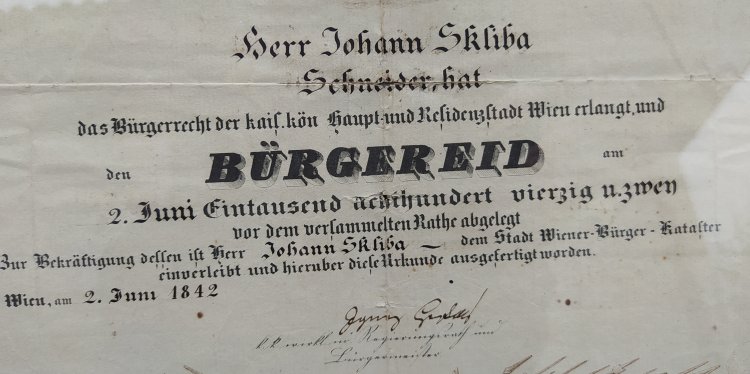 Herr Johann Skliba
Schneider, hat
das Bürgerrecht der kais. kön Haupt-und Residenzstadt Wien erlangt, und
den BÜRGEREID am
2. Juni Eintausend achthundert vierzig u. zwey
vor dem versammelten Rathe abgelegt
Zur Bekräftigung dessen ist Herr Johann Skliba — dem Stadt Wiener-Bürger-Kataster
einverleibt und hieruber diese Urkunde ausgefertigt worden.
Wien, am 2. Juni 1842
k k wirkl: n: Regierungsrath und
Bürgermeister